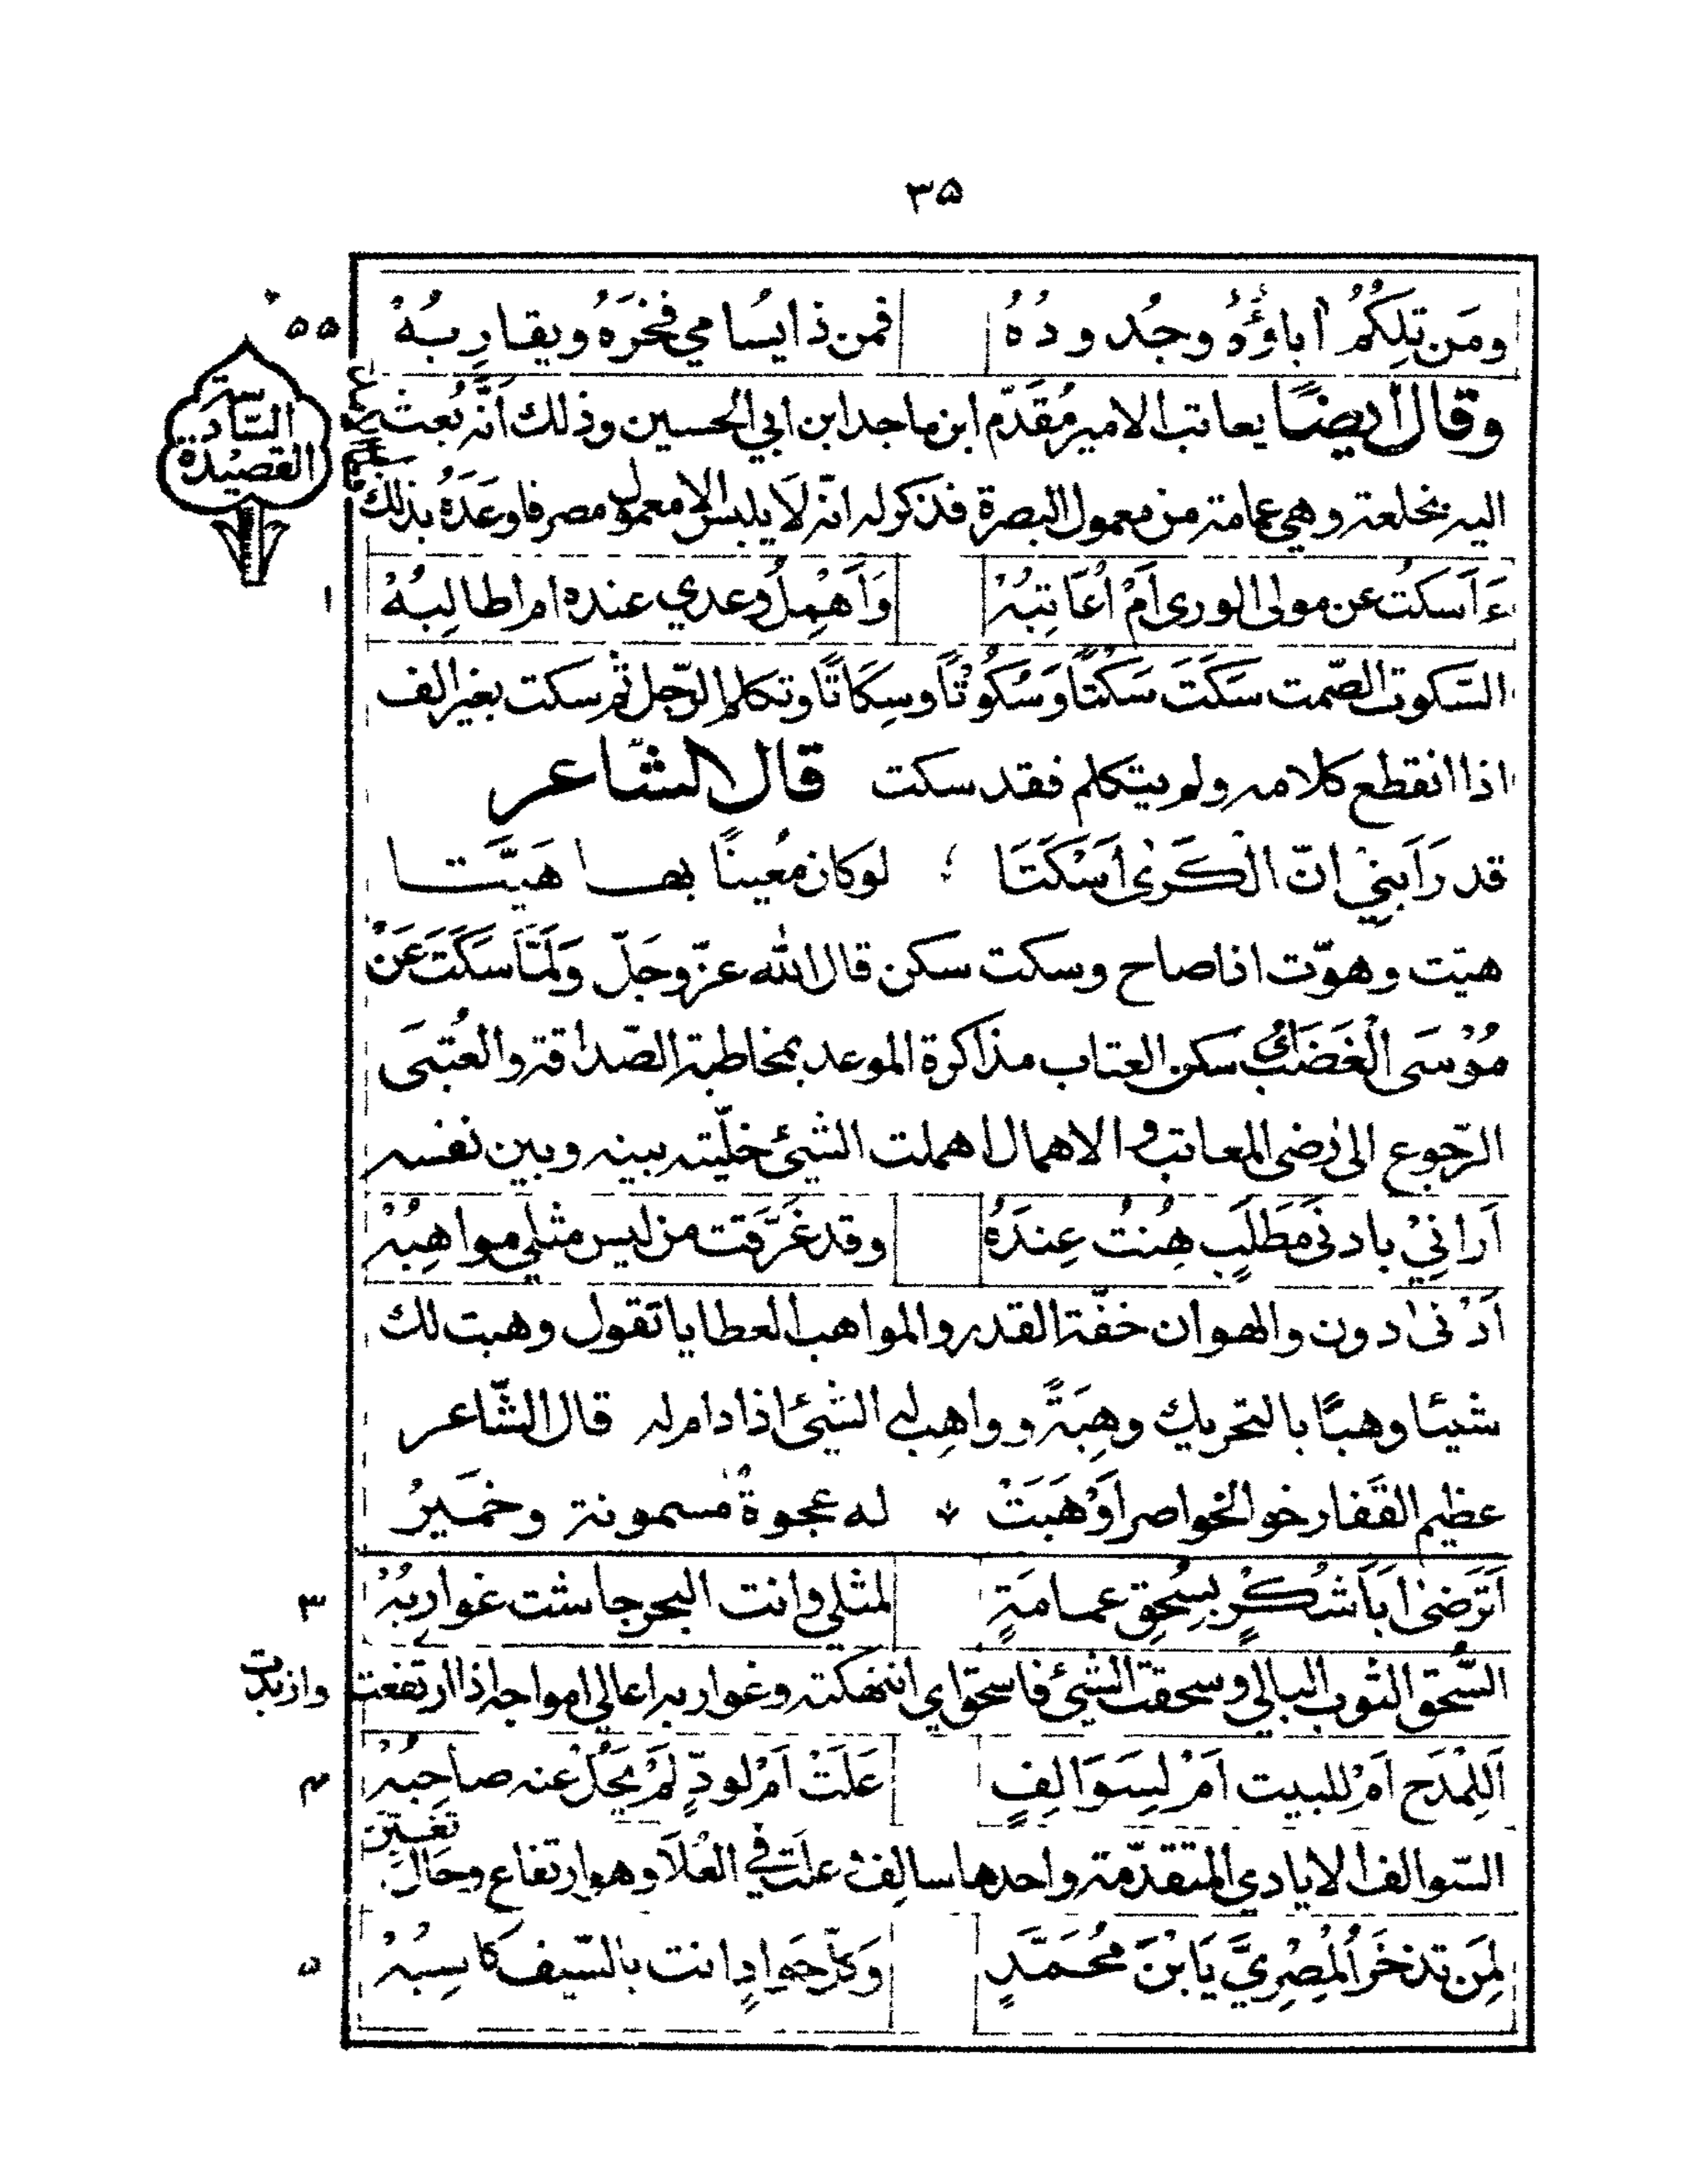 ۳۵
ومَن تلِكُمُ اٰباؤُهُ وجُدودُهُ فمن ذا يُسامي فخرَهُ ويقارِبُهْ ۵۵
القصيدة السّادسة
وقال ايضًا يعاتب الامير مُقدّم ابن ماجد ابن ابي الحسين وذلك أنّه بُعث
اليه بخلعة وهي عمامة من معمول البصرة فذكر له انّه لَا يلبس الا معمول مصر فاوعَدَهُ بذلك
ءَاَسكتُ عن مولى الورى اَمْ اُعَاتِبُهْ وَاَهْمِلُ وعدي عنده ام اطالِبُهْ ۱
السّكوت الصّمت سَكَتَ سَكْتًا وَسُكُوْتًا وسِكَاتًا وتكلم الرّجل ثم سكت بغير الف
اذا انقطع كلامه ولم يتكلم فقد سكت قال الشاعر
قد رَابَنِيْ انّ الْكَرٰى اَسْكَتَا ؛ لوكان مُعينًا بهــا هَيَّتــا
هيّت وهوّت اذا صاح وسكت سكن قال الله عزّ وجَلّ وَلَمَّا سَكَتَ عَنْ
مُوْسَى الْغَضَبُ اي سكن العتاب مذاكرة الموعد بمخاطبة الصّداقة والعُتبَى
الرّجوع الى رضى المعاتب والاهمال اهملت الشيئ خلّيته بينه وبين نفسه
اَرَانِيْ بادنى مَطَلَبٍ هِنتُ عِندَهُ وقد غَرَّقت من ليس مثلي مواهِبُهْ
اَدْنى دون والهوان خفّة القدر والمواهب العطايا تقول وهبت لك
شيئا وهبًا بالتحريك وهِبَةً وواهِب لي الشيئ اذا دام له قال الشّاعر
عظيم القَفا رخو الخواصر اَوْهَبَتْ له عجوةٌ مسمونة وخمَيرُ
اَتَرضىٰ اَبَا شُكْرٍ بِسُحِقِ عمــامَةٍ لمثلي وانت البحر جاشت غواربُهْ ۳
السُّحق الثوب البالي وسحقت الشيئ فاسحق اي انتهكته وغواربه اعالي امواجه اذا ارتفعت وازبدت
اَللِمْدَح اَمْ للبيت اَمْ لِسَوَالِفٍ عَلَتْ اَمْ لودٍّ لَمْ يَحُلْ عنه صاحِبُهْ ۴
السّوالف الايادي المتقدّمة واحدها سالِف علت في العُلَا وهو ارتفاع وحَالَ تغيّر
لِمَن تذخَرُ الْمِصْرِيَّ يَا بْنَ مُحَمَّدٍ وَكلّ جَوادٍ انت بالسّيف كاسِبُهْ ۵